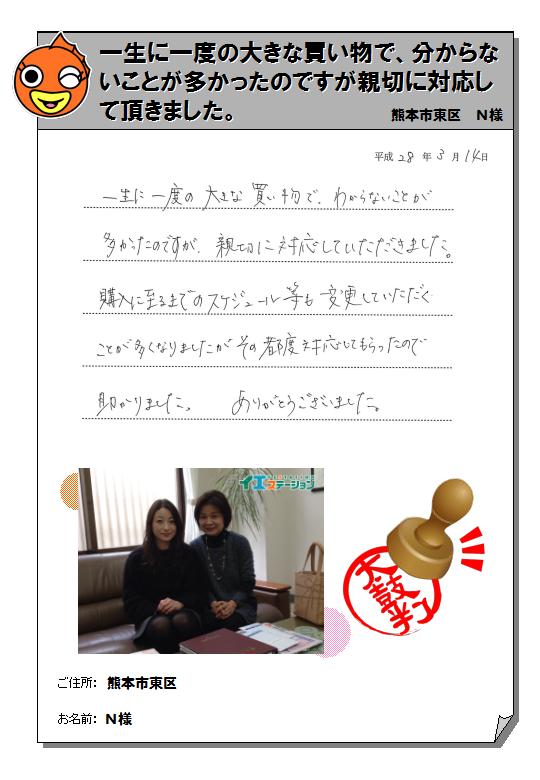 一生に一度の大きな買い物で、分からな
いことが多かったのですが親切に対応し
て頂きました。
熊本市東区 N様
平成 28 年 3 月 14日
一生に一度の大きな買い物で、わからないことが
多かったのですが、親切に対応していただきました。
購入に至るまでのスケジュール等も変更していただく
ことが多くなりましたがその都度対応してもらったので
助かりました。 ありがとうございました。
イエステーション
太鼓判
ご住所: 熊本市東区
お名前: N様